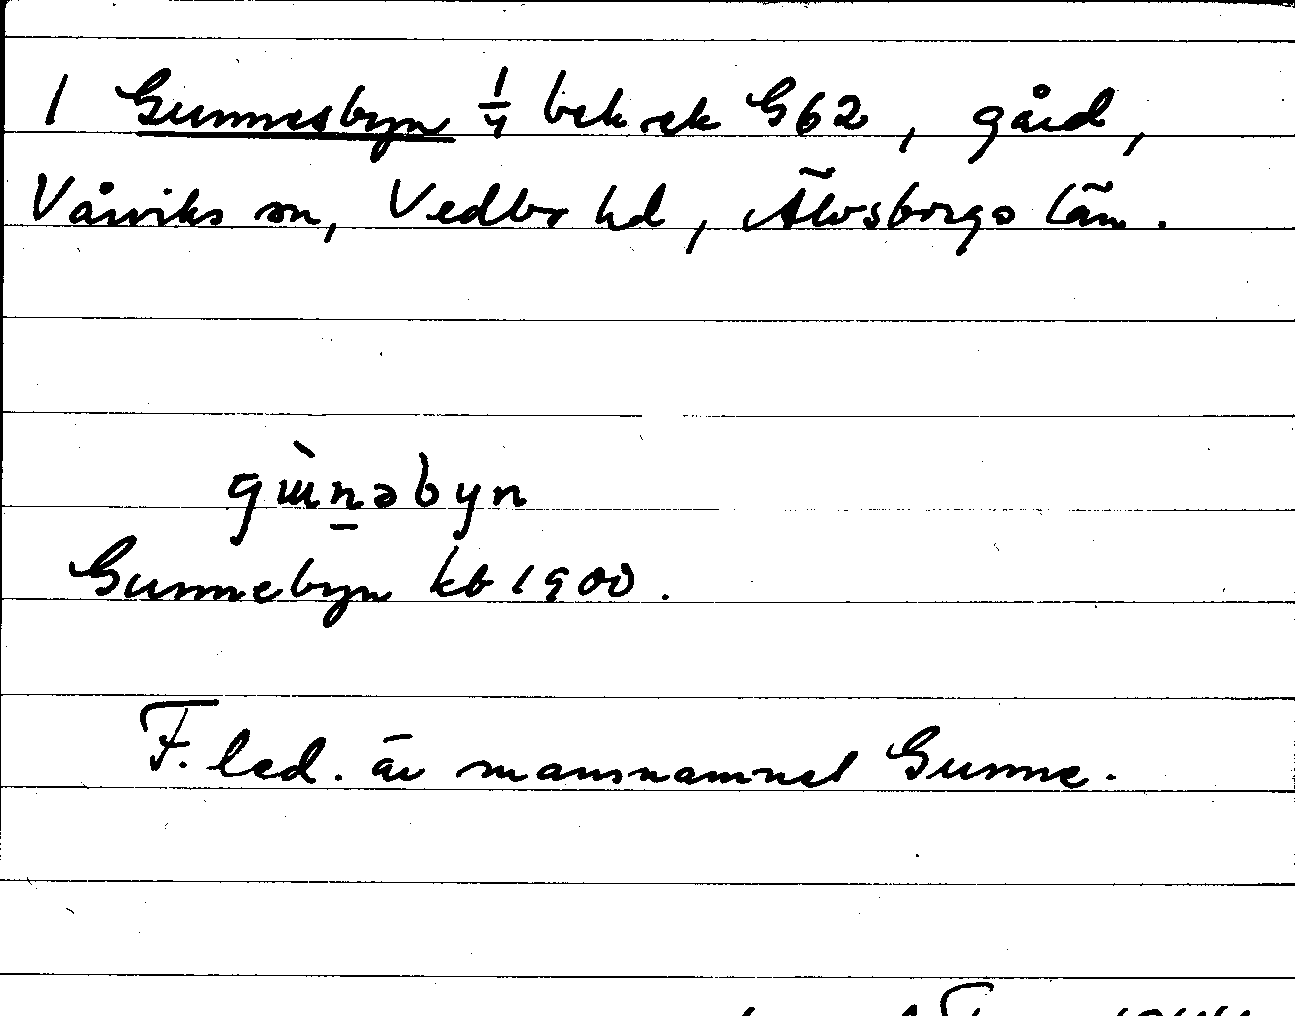 1 Gunnesbyn ¼ bek ek G62, gård,
Vårviks sn, Vedbo hd, Älvsborgs län.
gɯ̀nəbyn
Gunnebyn kb 1900.
F. led. är mansnamnet Gunne.